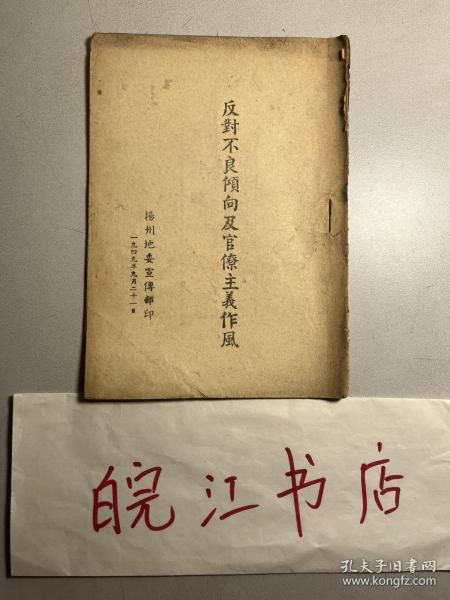 反對不良傾向及官僚主義作風
揚州地委宣傳部印
一九四九年九月二十一日
皖江书店
孔夫子旧书网
www.kongfz.com